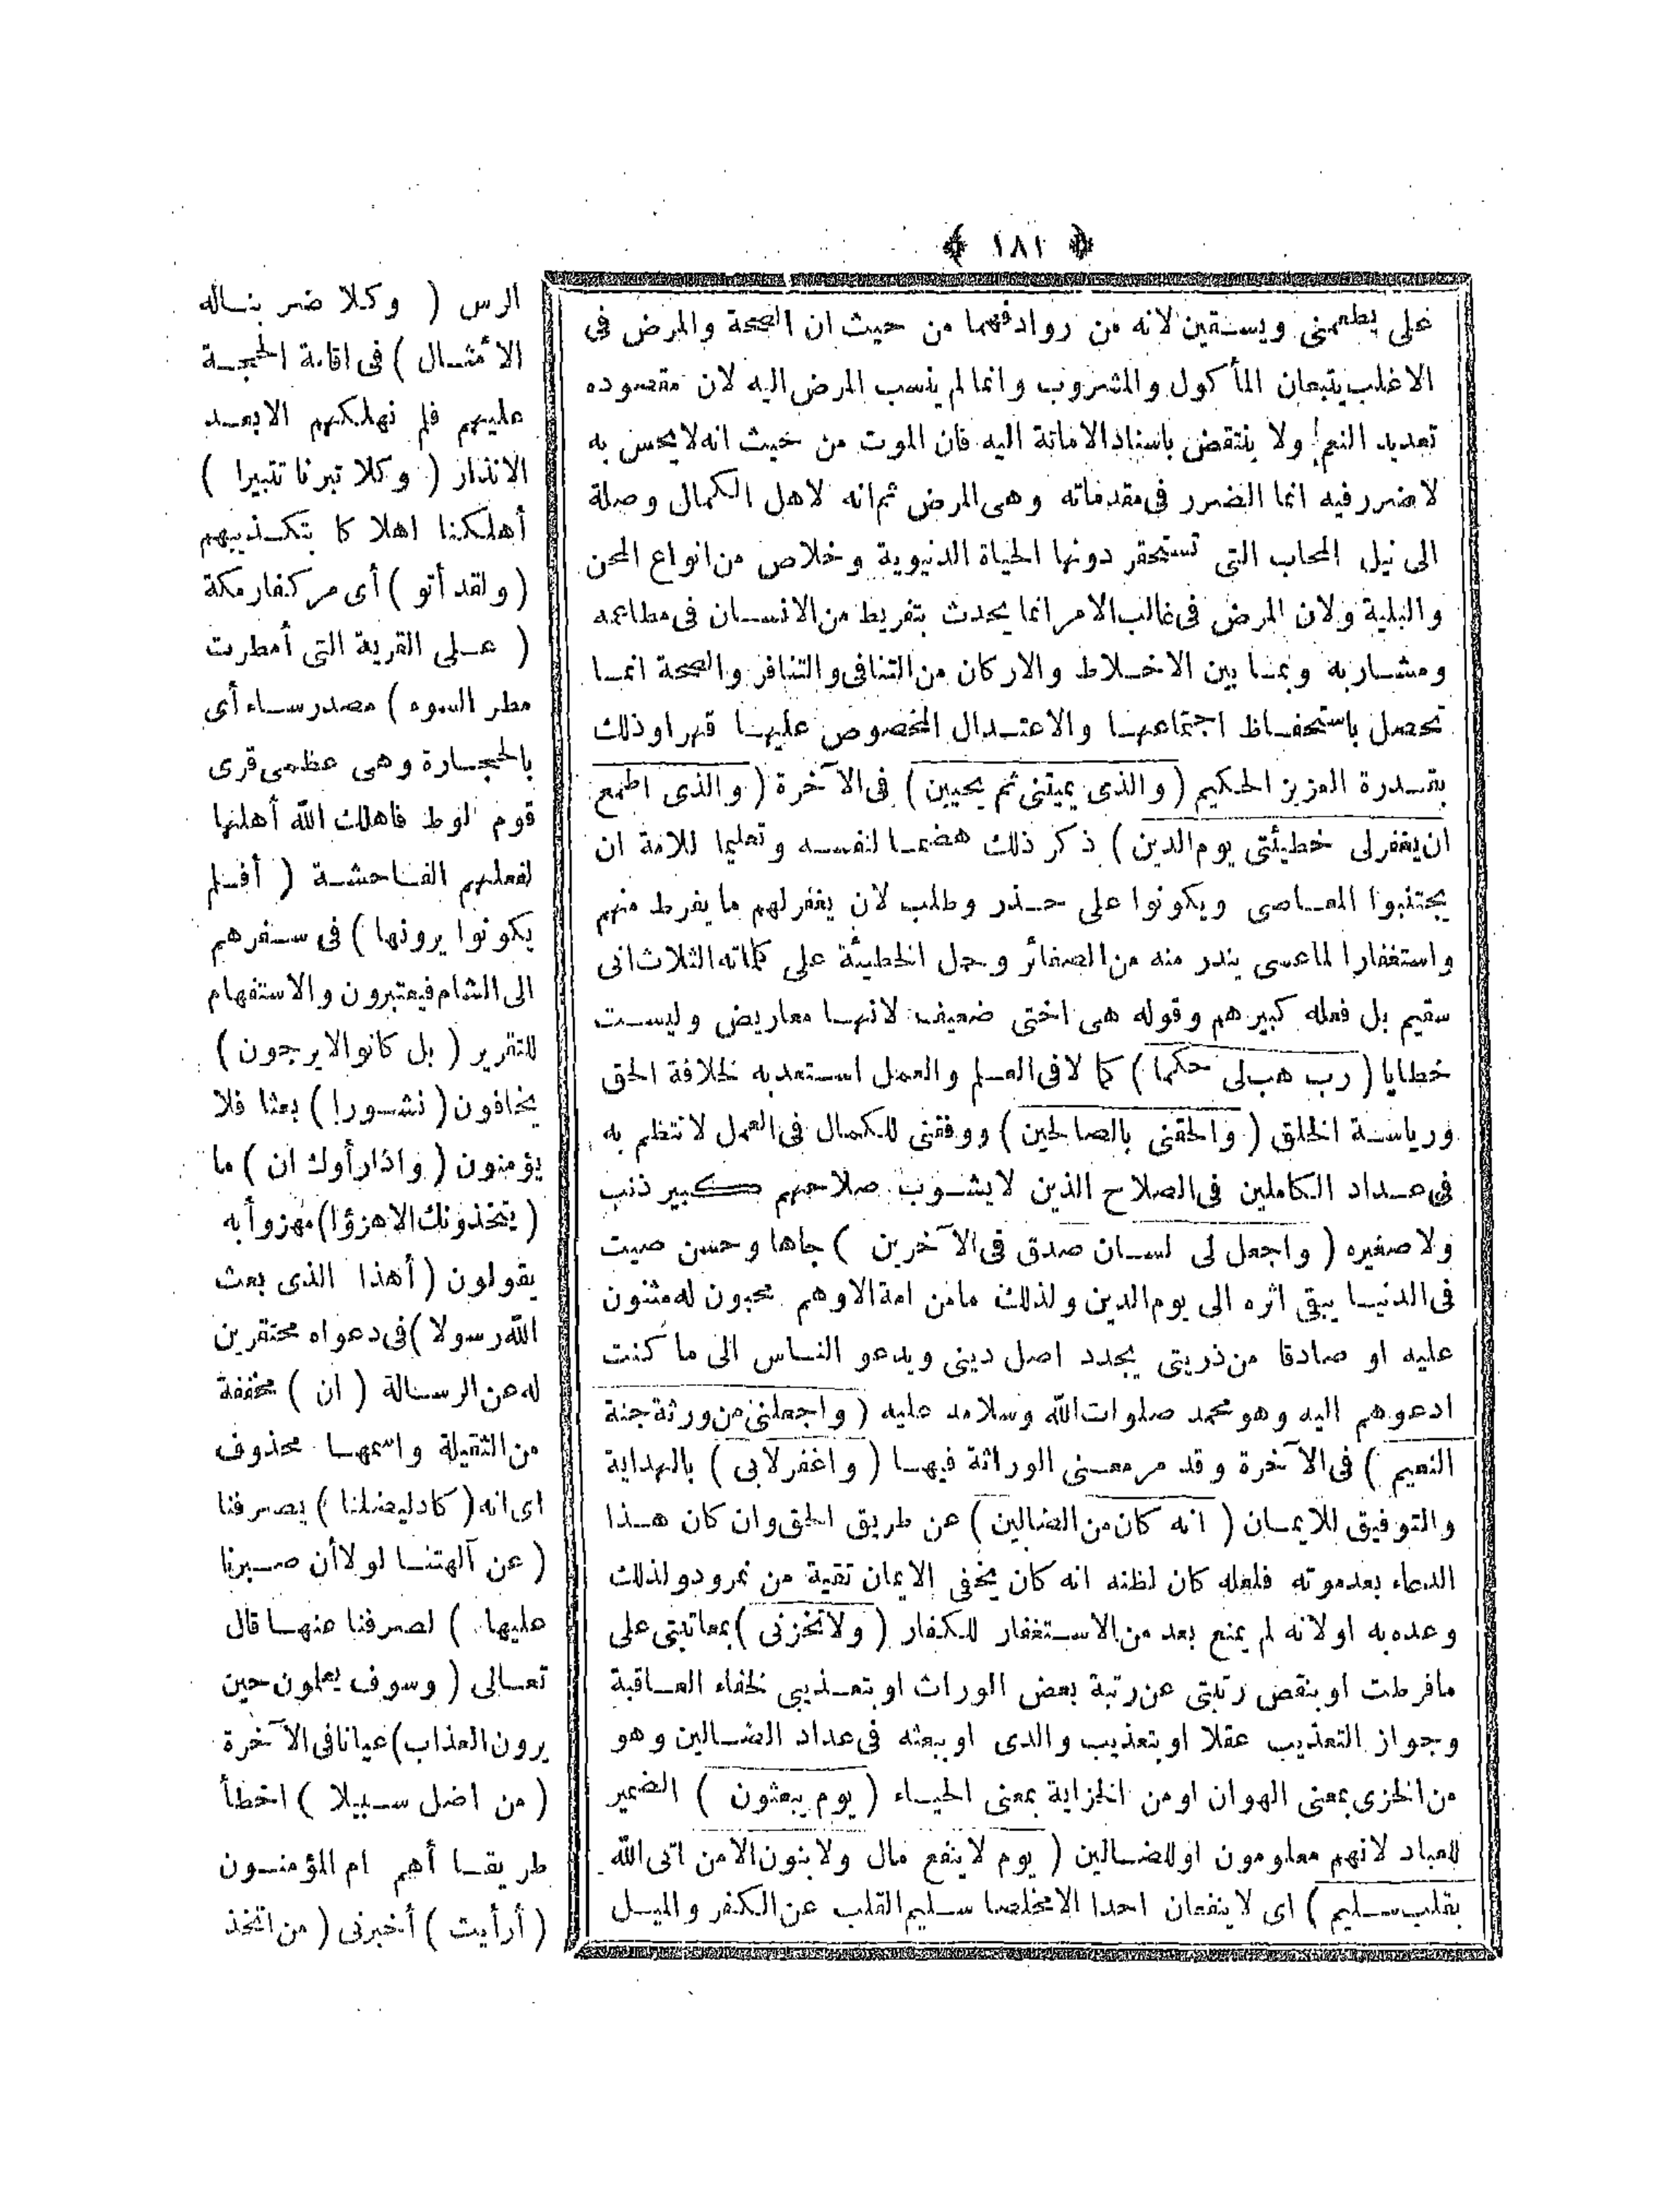 ﴿ ١٨١ ﴾
على يطعمنى ويسقين لانه من روادفهما من حيث ان الصحة والمرض فى
الاغلب يتبعان المأكول والمشروب وانما لم ينسب المرض اليه لان مقصوده
تعديد النعم ولا ينتقض باسناد الاماتة اليه فان الموت من حيث انه لا يحس به
لا ضرر فيه انما الضرر فى مقدماته وهى المرض ثم انه لاهل الكمال وصلة
الى نيل المحاب التى تستحقر دونها الحياة الدنيوية وخلاص من انواع المحن
والبلية ولان المرض فى غالب الامر انما يحدث بتفريط من الانسان فى مطاعمه
ومشاربه وبما بين الاخلاط والاركان من التنافى والتنافر والصحة انما
تحصل باستحفاظ اجتماعها والاعتدال المخصوص عليها قهرا وذلك
بقدرة العزيز الحكيم (والذى يميتنى ثم يحيين) فى الآخرة (والذى اطمع
ان يغفر لى خطيئتى يوم الدين) ذكر ذلك هضما لنفسه وتعليما للامة ان
يجتنبوا المعاصى ويكونوا على حذر وطلب لان يغفر لهم ما يفرط منهم
واستغفارا لما عسى يندر منه من الصغائر وحمل الخطيئة على كلماته الثلاث انى
سقيم بل فعله كبيرهم وقوله هى اختى ضعيف لانها معاريض وليست
خطايا (رب هب لى حكما) كما لا فى العلم والعمل استعد به لخلافة الحق
ورياسة الخلق (والحقنى بالصالحين) ووفقنى للكمال فى العمل لانتظم به
فى عداد الكاملين فى الصلاح الذين لا يشوب صلاحهم كبير ذنب
ولا صغيره (واجعل لى لسان صدق فى الآخرين) جاها وحسن صيت
فى الدنيا يبقى اثره الى يوم الدين ولذلك ما من امة الا وهم محبون له مثنون
عليه او صادقا من ذريتى يجدد اصل دينى ويدعو الناس الى ما كنت
ادعوهم اليه وهو محمد صلوات الله وسلامه عليه (واجعلنى من ورثة جنة
النعيم) فى الآخرة وقد مر معنى الوراثة فيها (واغفر لابى) بالهداية
والتوفيق للايمان (انه كان من الضالين) عن طريق الحق وان كان هذا
الدعاء بعد موته فلعله كان لظنه انه كان يخفى الايمان تقية من نمرود ولذلك
وعده به او لانه لم يمنع بعد من الاستغفار للكفار (ولا تخزنى) بمعاتبتى على
ما فرطت او بنقص رتبتى عن رتبة بعض الوراث او بتعذيبى لخفاء العاقبة
وجواز التعذيب عقلا او بتعذيب والدى او ببعثه فى عداد الضالين وهو
من الخزى بمعنى الهوان او من الخزاية بمعنى الحياء (يوم يبعثون) الضمير
للعباد لانهم معلومون او للضالين (يوم لا ينفع مال ولا بنون الا من اتى الله
بقلب سليم) اى لا ينفعان احدا الا مخلصا سليم القلب عن الكفر والميل
الرس (وكلا ضربنا له
الأمثال) فى اقامة الحجة
عليهم فلم نهلكهم الا بعد
الانذار (وكلا تبرنا تتبيرا)
أهلكنا اهلاكا بتكذيبهم
(ولقد أتو) أى مر كفار مكة
(على القرية التى أمطرت
مطر السوء) مصدر ساء أى
بالحجارة وهى عظمى قرى
قوم لوط فاهلك الله أهلها
لفعلهم الفاحشة (أفلم
يكونوا يرونها) فى سفرهم
الى الشام فيعتبرون والاستفهام
للتقرير (بل كانوا لا يرجون)
يخافون (نشورا) بعثا فلا
يؤمنون (واذا رأوك ان) ما
(يتخذونك الا هزؤا) مهزوأ به
يقولون (أهذا الذى بعث
الله رسولا) فى دعواه محتقرين
له عن الرسالة (ان) مخففة
من الثقيلة واسمها محذوف
اى انه (كاد ليضلنا) يصرفنا
(عن آلهتنا لولا أن صبرنا
عليها) لصرفنا عنها قال
تعالى (وسوف يعلمون حين
يرون العذاب) عيانا فى الآخرة
(من اضل سبيلا) اخطأ
طريقا أهم ام المؤمنون
(أرأيت) أخبرنى (من اتخذ